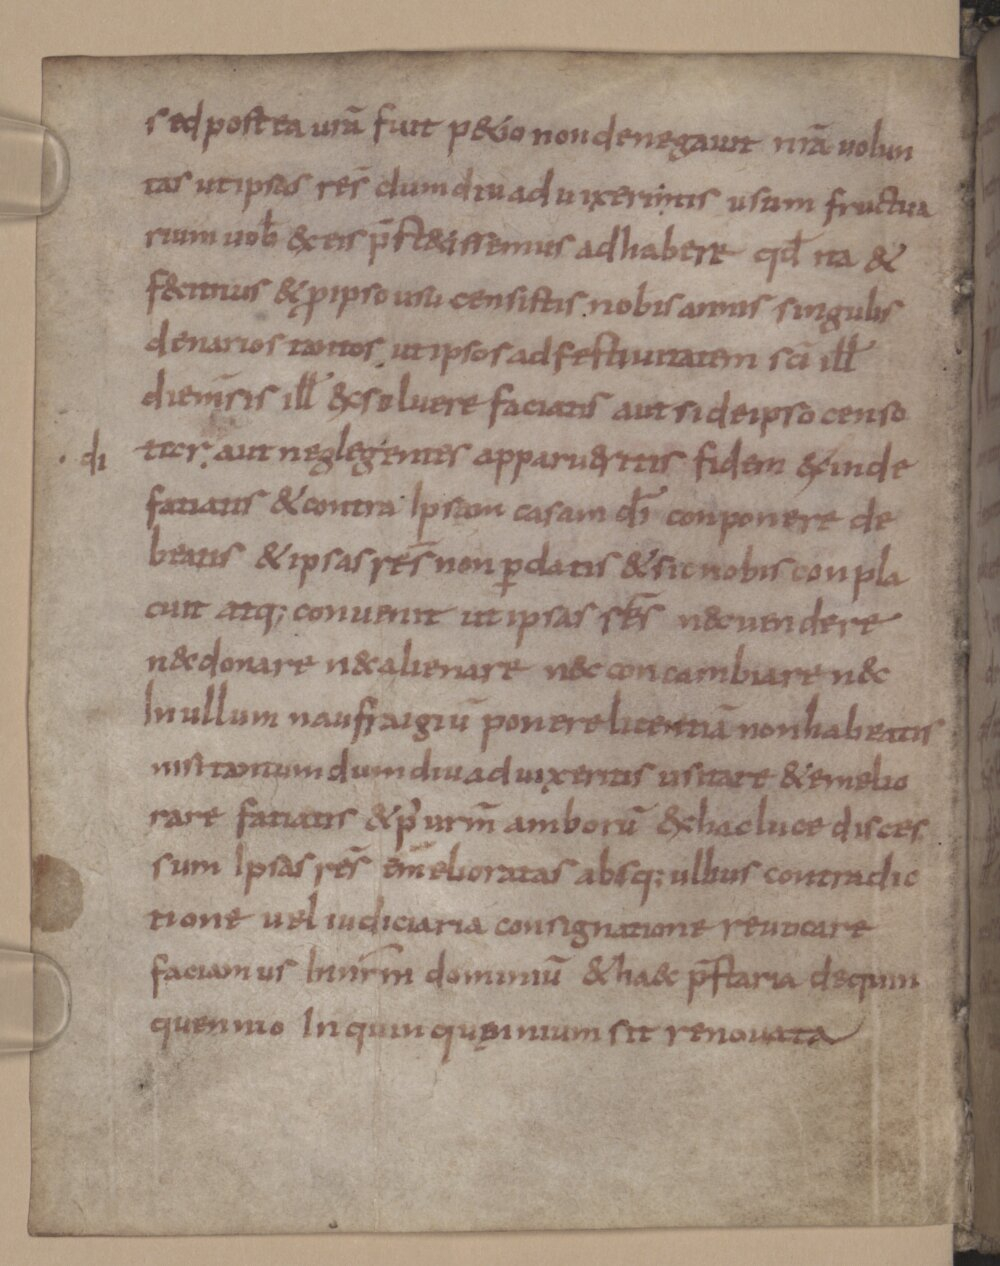 sed postea ura̅ fuit p&icio non denegauit nra̅ volun
tas ut ipsas res̅ dum diu aduixeritis usum fructua
rium uob̅ &eis p̅st&issemus ad habere qd̅ ita &
fecimus & p ipso usu censistis nobis annis singulis
denarios tantos ut ipsos ad festiuitatem sci̅ ill̅
diem̅sis ill̅ &xsoluere faciatis aut si de ipso censo
di
ticr. aut neglegentes apparueritis fidem &inde
fatiatis &contra Ipsam casam di̅ conponere de
beatis & ipsas res̅ non p̲datis & sic nobis conpla
cuit atq; convenit ut ipsas res̅ n&c uendere
n&c donare n&c alienare n&c concambiare n&c
In ullum naufraigiu̅ ponere licentia̅ non habeatis
nisi tantum dum diu aduixeritis usitare & emelio
rare fatiatis & p̅ urm̅ amboru̅ &xhac luce disces
sum Ipsas res̅ em̅elioratas absq; ullius contradic
tione uel iudiciaria consignatione reuocare
faciamus In nr̅m dominiu̅ &ha&c p̅staria de quin
quennio In quinquęnnium sit renouata